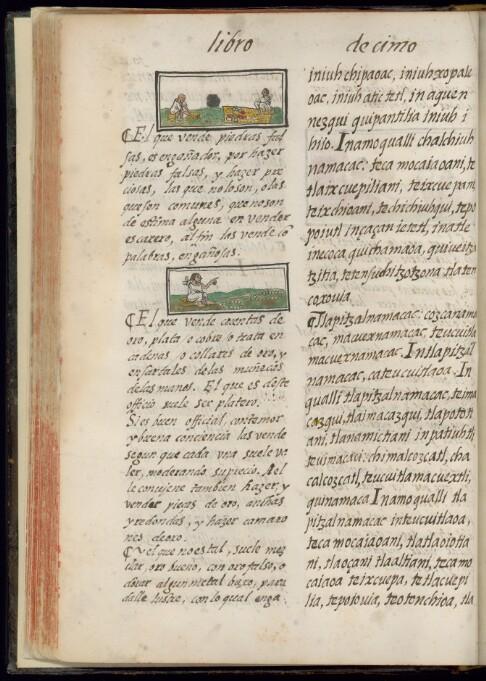 libro
decimo
¶ El que vende piedras fal
sas, es engañador, por hazer
piedras falsas, y hazer pre
ciosas, las que no lo son, o las
que son comunes, que no son
de estima alguna en vender
es carero, al fin las vende cõ
palabras, engañosas.
¶ El que vende cuentas de
oro, plata o cobre o trata en
cadenas o collares de oro, y
en sartales de las muñecas
de las manos. El que es deste
officio suele ser platero.
Si es buen official, con temor
y buena conciencia las vende
segun que cada vna suele va
ler, moderando su precio. A el
le conviene tambien hazer, y
vender pieças de oro, anchas
y redondas, y hazer camaro
nes de oro.
¶ Y el que no es tal, suele mez
clar, oro bueno, con oro falso, o
dorar algun metal baxo, para
dalle lustre, con lo qual enga
iniuh chipaoac, iniuh xopale
oac, iniuh atic tetl, in aquen
nezqui quipantilia iniuh i
hilo. Inamo qualli chalchiuh
namacac: teca mocaiaoani, te
tlatxcuepiliani, teixcuepani
teixchioani, techichiuhqui, tepo
poiutl inçaçan ietetl, inatle
inecoca quichamaoa, quiueitz
tzitia, tetentzitzotzona, tlaten
coxouia.
¶ Tlapitzalnamacac: cozcanama
cac, macuexnamacac, teucuitla
macuexnamacac. In tlapitzal
namacac, ca teucuitlaoa. In
qualli tlapitzalnamacac, teima
cazqui, tlaimacazqui, tlapopoh
ani, tlanamictiani in patiuhtli
teuimacaxi: chimalcozcatl, cha
calcozcatl, teucuitlamacuextli,
quinamaca. Inamo qualli tla
pitzalnamacac inteucuitlaoa,
teca mocaiaoani, tlatlaciotia
ni, tlaçocani tlaaltiani, teca mo
caiaoa teixcuepa, tetlacuepi
lia, tepotouia, teotenchioa, tla